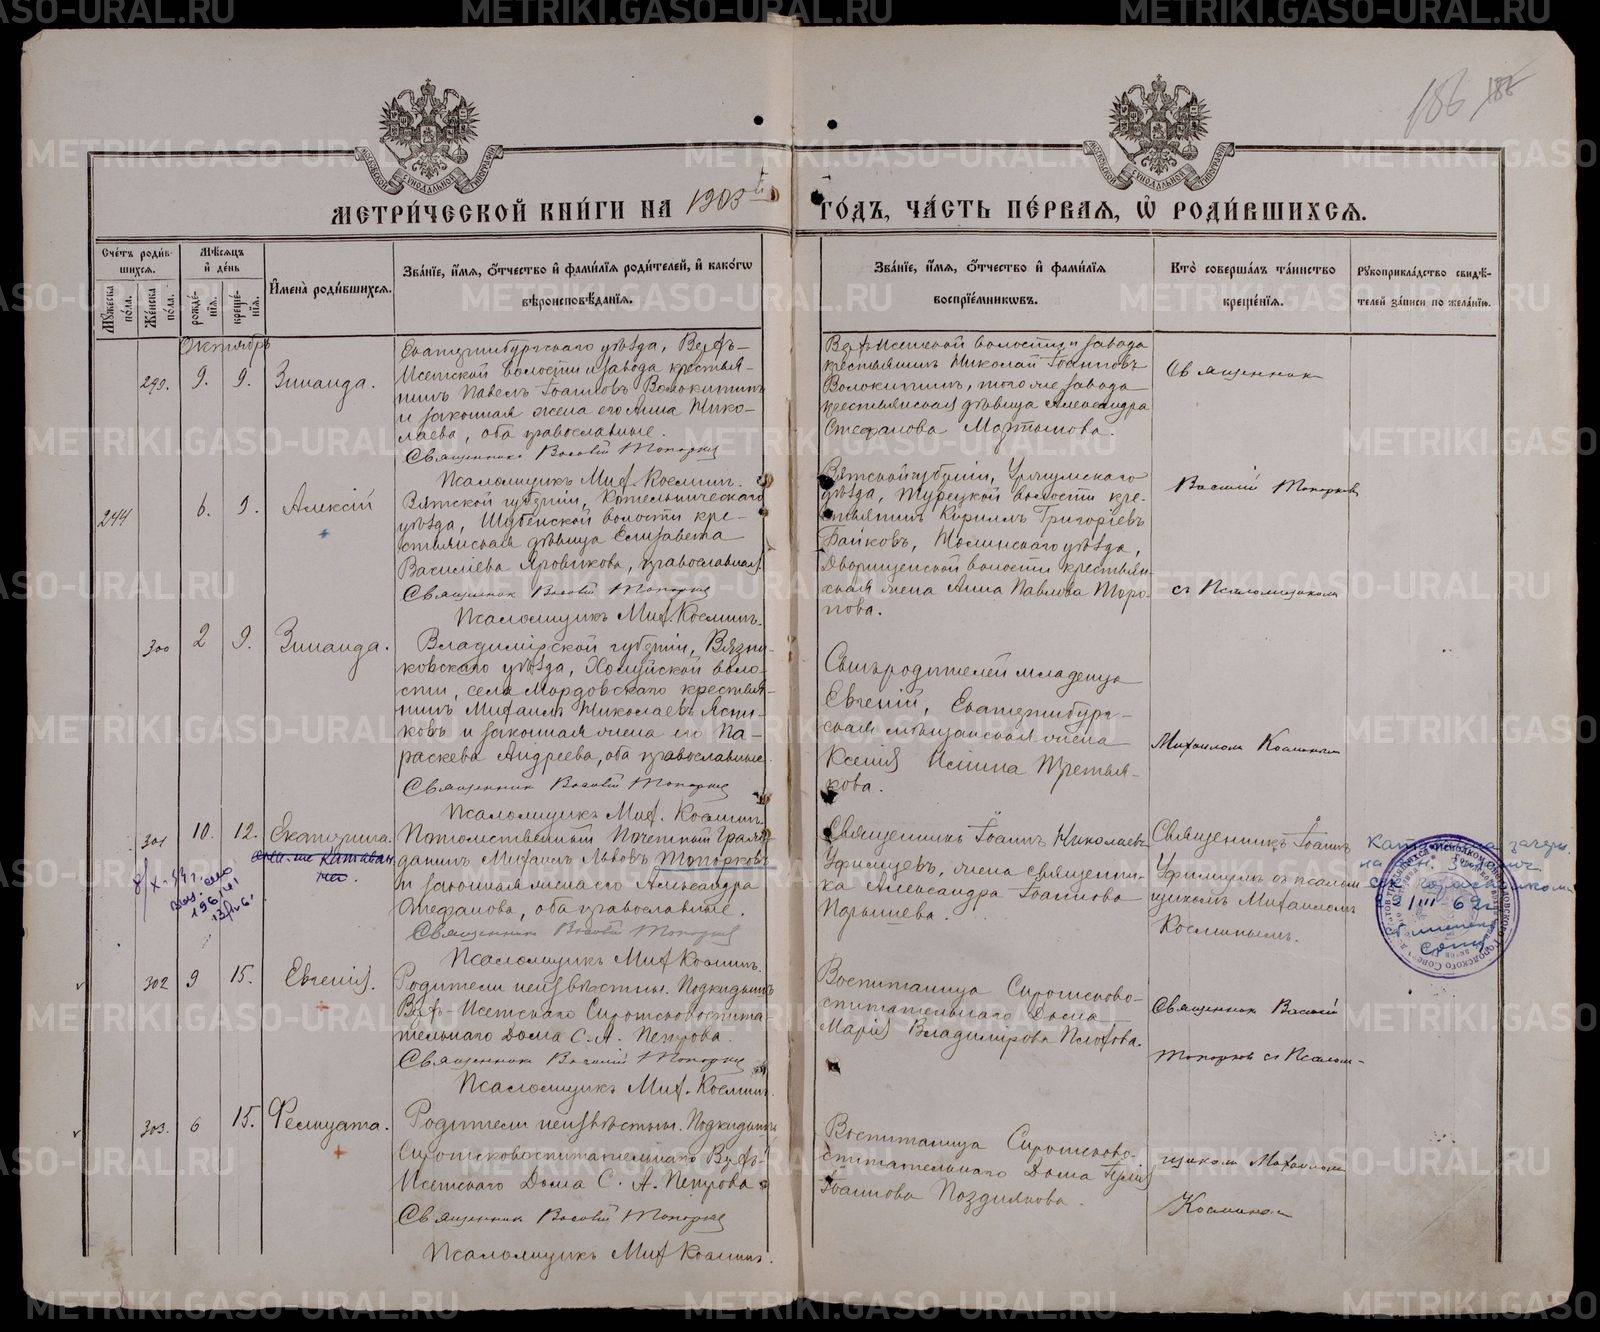 186
МЕТРИ́ЧЕСКОЙ КНИ́ГИ НА 1903й ГО́ДЪ, ЧА́СТЬ ПЕ́РВАЯ, Ѡ РОДИ́ВШИХСЯ.
Сче́тъ роди́вшихся.
Му́жеска по́ла.
Же́нска по́ла.
Мѣ́сяцъ и де́нь
рожде́нія.
креще́нія.
Имена̀ роди́вшихся.
Зва́ніе, и́мя, о́тчество и фами́лія роди́телей, и како́гѡ
вѣроисповѣ́данія.
Зва́ніе, и́мя, о́тчество и фами́лія
воспріе́мниковъ.
Кто̀ соверша́лъ та́инство
креще́нія.
Рукоприкла́дство свидѣ́-
телей за́писи по жела́нію.
Октябрь
299. 9. 9. Зинаида.
Екатеринбургскаго уѣзда, Верхъ-
Исетской волости и завода крестья-
нинъ Павелъ Іоанновъ Волокитинъ
и законная жена его Анна Нико-
лаева, оба православные.
Священникъ Василій Топорковъ
Псаломщикъ Мих. Косминъ.
Верхъ-Исетской волости и завода
крестьянинъ Николай Іоанновъ
Волокитинъ, того же завода
крестьянская дѣвица Александра
Стефанова Мартынова.
Священник
244 6. 9. Алексій
Вятской губерніи, Котельническаго
уѣзда, Шубенской волости кре-
стьянская дѣвица Елизавета
Василіева Яровикова, православная.
Священник Василій Топорков
Псаломщикъ Мих. Косминъ.
Вятской губерніи, Уржумскаго
уѣзда, Турецкой волости кре-
стьянинъ Кириллъ Григоріевъ
Байковъ,
волости крестьян-
ская жена Анна Павлова Торо-
пова.
Василій Топорков
съ Псаломщиком
300 2 9. Зинаида.
Владимірской губерніи, Вязни-
ковскаго уѣзда, Холуйской воло-
сти, села Мордовскаго крестья-
нинъ Михаилъ Николаевъ Ясни-
ковъ и законная жена его Па-
раскева Андреева, оба православные.
Священник Василій Топорков
Псаломщикъ Мих. Косминъ.
Сынъ родителей младенца
Евгеній, Екатеринбург-
ская мѣщанская жена
Ксенія Ильина Третья-
кова.
Михаилом Косминым
301 10. 12. Екатерина.
Потомственный Почетный Граж-
данинъ Михаилъ Львовъ Топорковъ
и законная жена его Александра
Стефанова, оба православные.
Священник Василій Топорков
Псаломщикъ Мих. Косминъ.
Священникъ Іоаннъ Николаевъ
Уфимцевъ, жена священни-
ка Александра Іоаннова
Парышева.
Священникъ Іоаннъ
Уфимцевъ съ псалом-
щикомъ Михаиломъ
Косминымъ.
302 9 15. Евгенія.
Родители неизвѣстны. Подкидышъ
Верхъ-Исетскаго Сиротсковоспита-
тельнаго Дома С. А. Петрова.
Священник Василій Топорков
Псаломщикъ Мих. Косминъ.
Воспитанница Сиротсково-
спитательнаго Дома
Марія Владимірова Плохова.
Священник Василій
Топорков съ Псалом-
303. 6 15. Фелицата.
Родители неизвѣстны. Подкидышъ
Сиротсковоспитательнаго Верхъ-
Исетскаго Дома С. А. Петрова
Священник Василій Топорков
Псаломщикъ Мих. Косминъ.
Воспитанница Сиротсково-
спитательнаго Дома
Іоаннова Позднякова.
щиком Михаилом
Косминым
METRIKI.GASO-URAL.RU